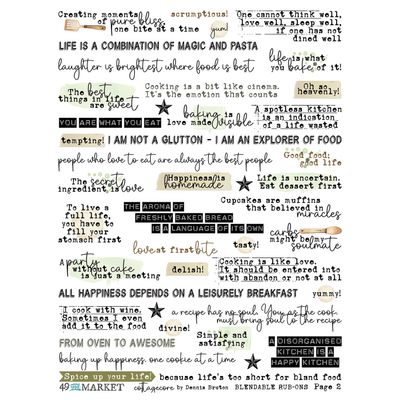 Creating moments
of pure bliss,
one bite at a time
scrumptious!
yum!
One cannot think well,
love well, sleep well,
if one has not
dined well
LIFE IS A COMBINATION OF MAGIC AND PASTA
laughter is brightest where food is best
life is what
you bake of it!
The best
things in life
are sweet
Cooking is a bit like cinema.
It's the emotion that counts
Oh so
heavenly!
YOU ARE WHAT YOU EAT
baking is
love made visible
A spotless kitchen
is an indication
of a life wasted
tempting!
I AM NOT A GLUTTON - I AM AN EXPLORER OF FOOD
people who love to eat are always the best people
Good food:
good life
The secret
ingredient is love
Happiness is
homemade
Life is Uncertain.
Eat dessert first
To live a
full life,
you have to
fill your
stomach first
THE AROMA OF
FRESHLY BAKED BREAD
IS A LANGUAGE OF ITS OWN
Cupcakes are muffins
that believed in
miracles
carbs
might be my
soulmate
love at first bite
tasty!
A party
without cake
is just a meeting
delish!
Cooking is like love.
It should be entered into
with abandon or not at all
ALL HAPPINESS DEPENDS ON A LEISURELY BREAKFAST
yummy!
I cook with wine.
Sometimes I even
add it to the food
divine!
a recipe has no soul. You as the cook
must bring soul to the recipe
FROM OVEN TO AWESOME
Simple and
satisfying
A DISORGANISED
KITCHEN IS A
HAPPY KITCHEN
baking up happiness, one cookie at a time
Spice up your life!
because life's too short for bland food
49 AND MARKET
cottagecore by Dennis Bruton
BLENDABLE RUB-ONS
Page 2